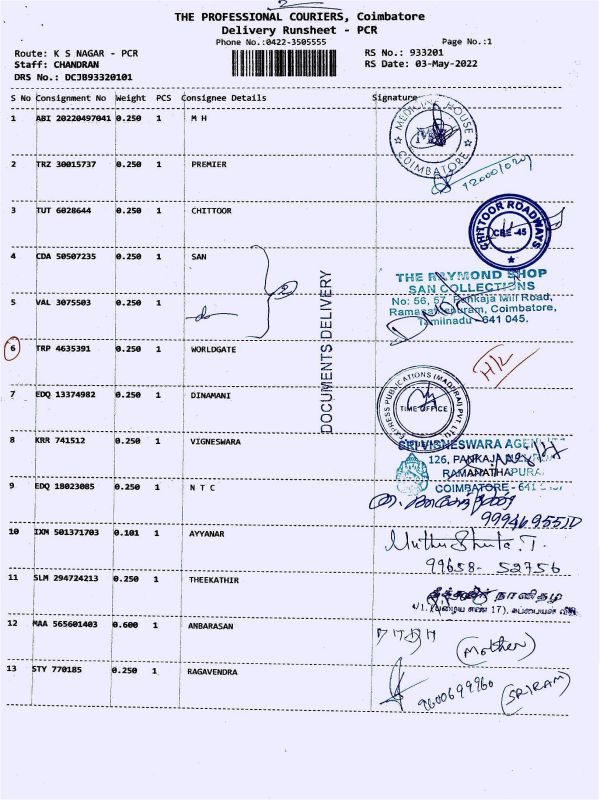 THE PROFESSIONAL COURIERS, Coimbatore
Delivery Runsheet - PCR
Phone No.:0422-3505555
Page No.:1
Route: K S NAGAR - PCR
RS No.: 933201
Staff: CHANDRAN
RS Date: 03-May-2022
DRS No.: DCJB93320101
S No Consignment No Weight PCS Consignee Details Signature
1 ABI 20220497041 0.250 1 M H
MEDICINE HOUSE
COIMBATORE
2 TRZ 30015737 0.250 1 PREMIER
3 TUT 6028644 0.250 1 CHITTOOR
CHITTOOR ROADWAYS
CBE -45
4 CDA 50507235 0.250 1 SAN
THE RAYMOND SHOP
SAN COLLECTIONS
No: 56, 57, Pankaja Mill Road,
Ramanathapuram, Coimbatore,
Tamilnadu - 641 045.
5 VAL 3075503 0.250 1
DOCUMENTS DELIVERY
6 TRP 4635391 0.250 1 WORLDGATE
H/2
7 EDQ 13374982 0.250 1 DINAMANI
EXPRESS PUBLICATIONS (MADURAI) PVT LTD
TIME OFFICE
8 KRR 741512 0.250 1 VIGNESWARA
SRI VIGNESWARA
126, PANKAJA
RAMANATHAPURA
COIMBATORE - 641
9 EDQ 18023085 0.250 1 N T C
10 IXM 501371703 0.101 1 AYYANAR
99658- 52756
11 SLM 294724213 0.250 1 THEEKATHIR
12 MAA 565601403 0.600 1 ANBARASAN
(Mother)
13 STY 770185 0.250 1 RAGAVENDRA
9600699960
(SRIRAM)